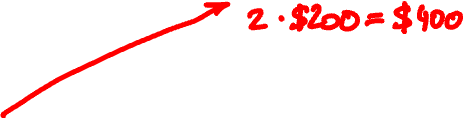 2 · $200 = $400